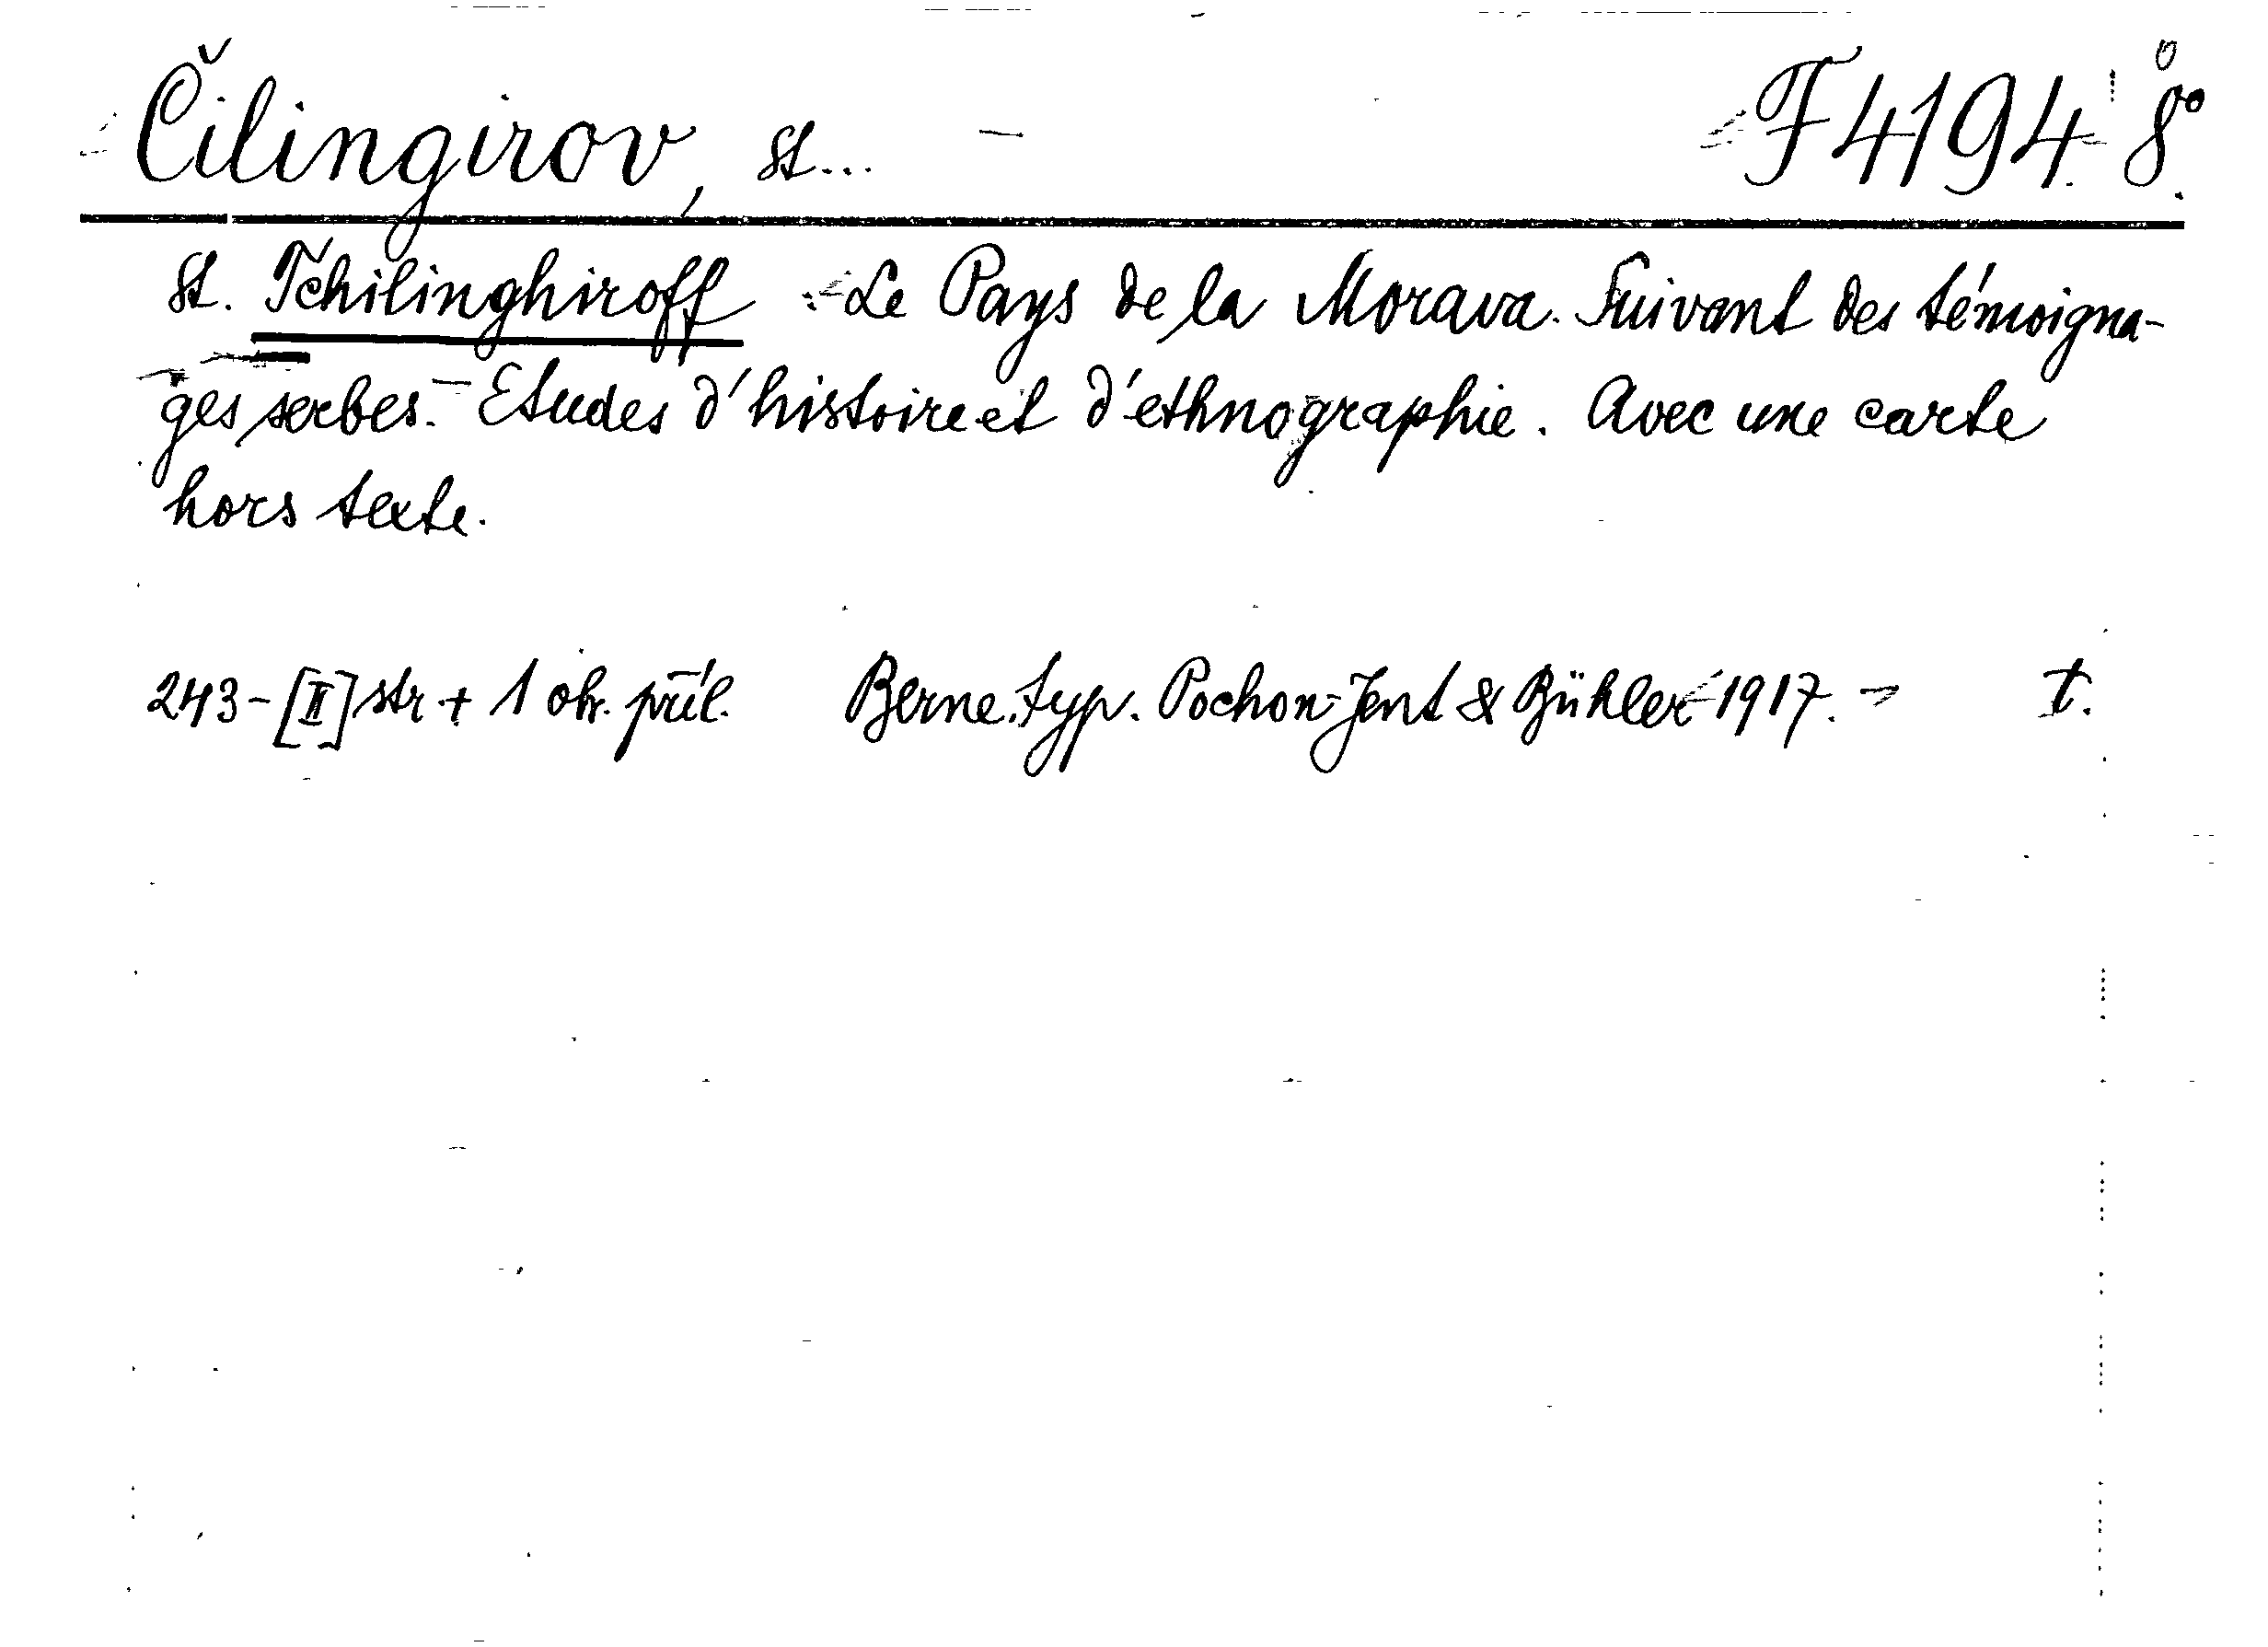 Čilingirov, St... — F 4194 8°.
St. Tchilinghiroff - Le Pays de la Morava. Suivant des témoigna-
ges serbes. - Etudes d'histoire et d'ethnographie. Avec une carte
hors texte.
243-[II] str. + 1 obr. příl. Berne. typ. Pochon-Jent & Bühler 1917. - t.